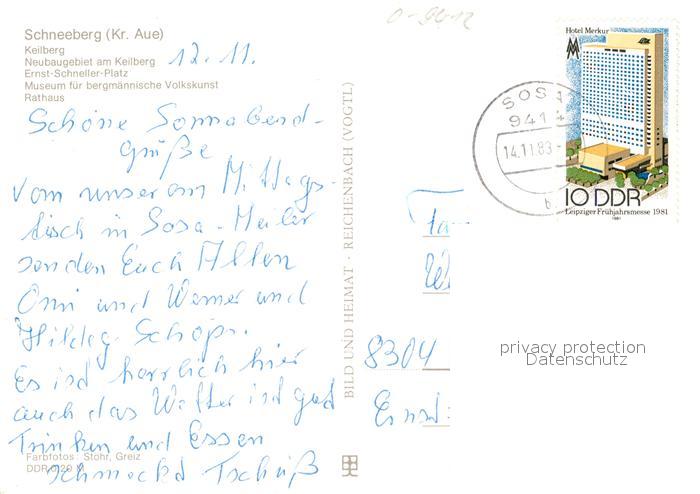 0-9412
Schneeberg (Kr. Aue)
Keilberg
Neubaugebiet am Keilberg
Ernst-Schneller-Platz
Museum für bergmännische Volkskunst
Rathaus
12.11.
Schöne Sonnabend-
grüße
vom unserem Mittags-
tisch in Sosa-Meiler
senden Euch Allen
Omi und Werner und
Hildeg. Schöps.
Es ist herrlich hier
auch das Wetter ist gut
Trinken und Essen
schmeckt Tschüß
Farbfotos: Stöhr, Greiz
DDR 0,20 M
BILD UND HEIMAT · REICHENBACH (VOGTL)
Hotel Merkur
MM
10 DDR
Leipziger Frühjahrsmesse 1981
1981
SOSA
9414
14.11.83
b
Fa-
8304
privacy protection
Datenschutz